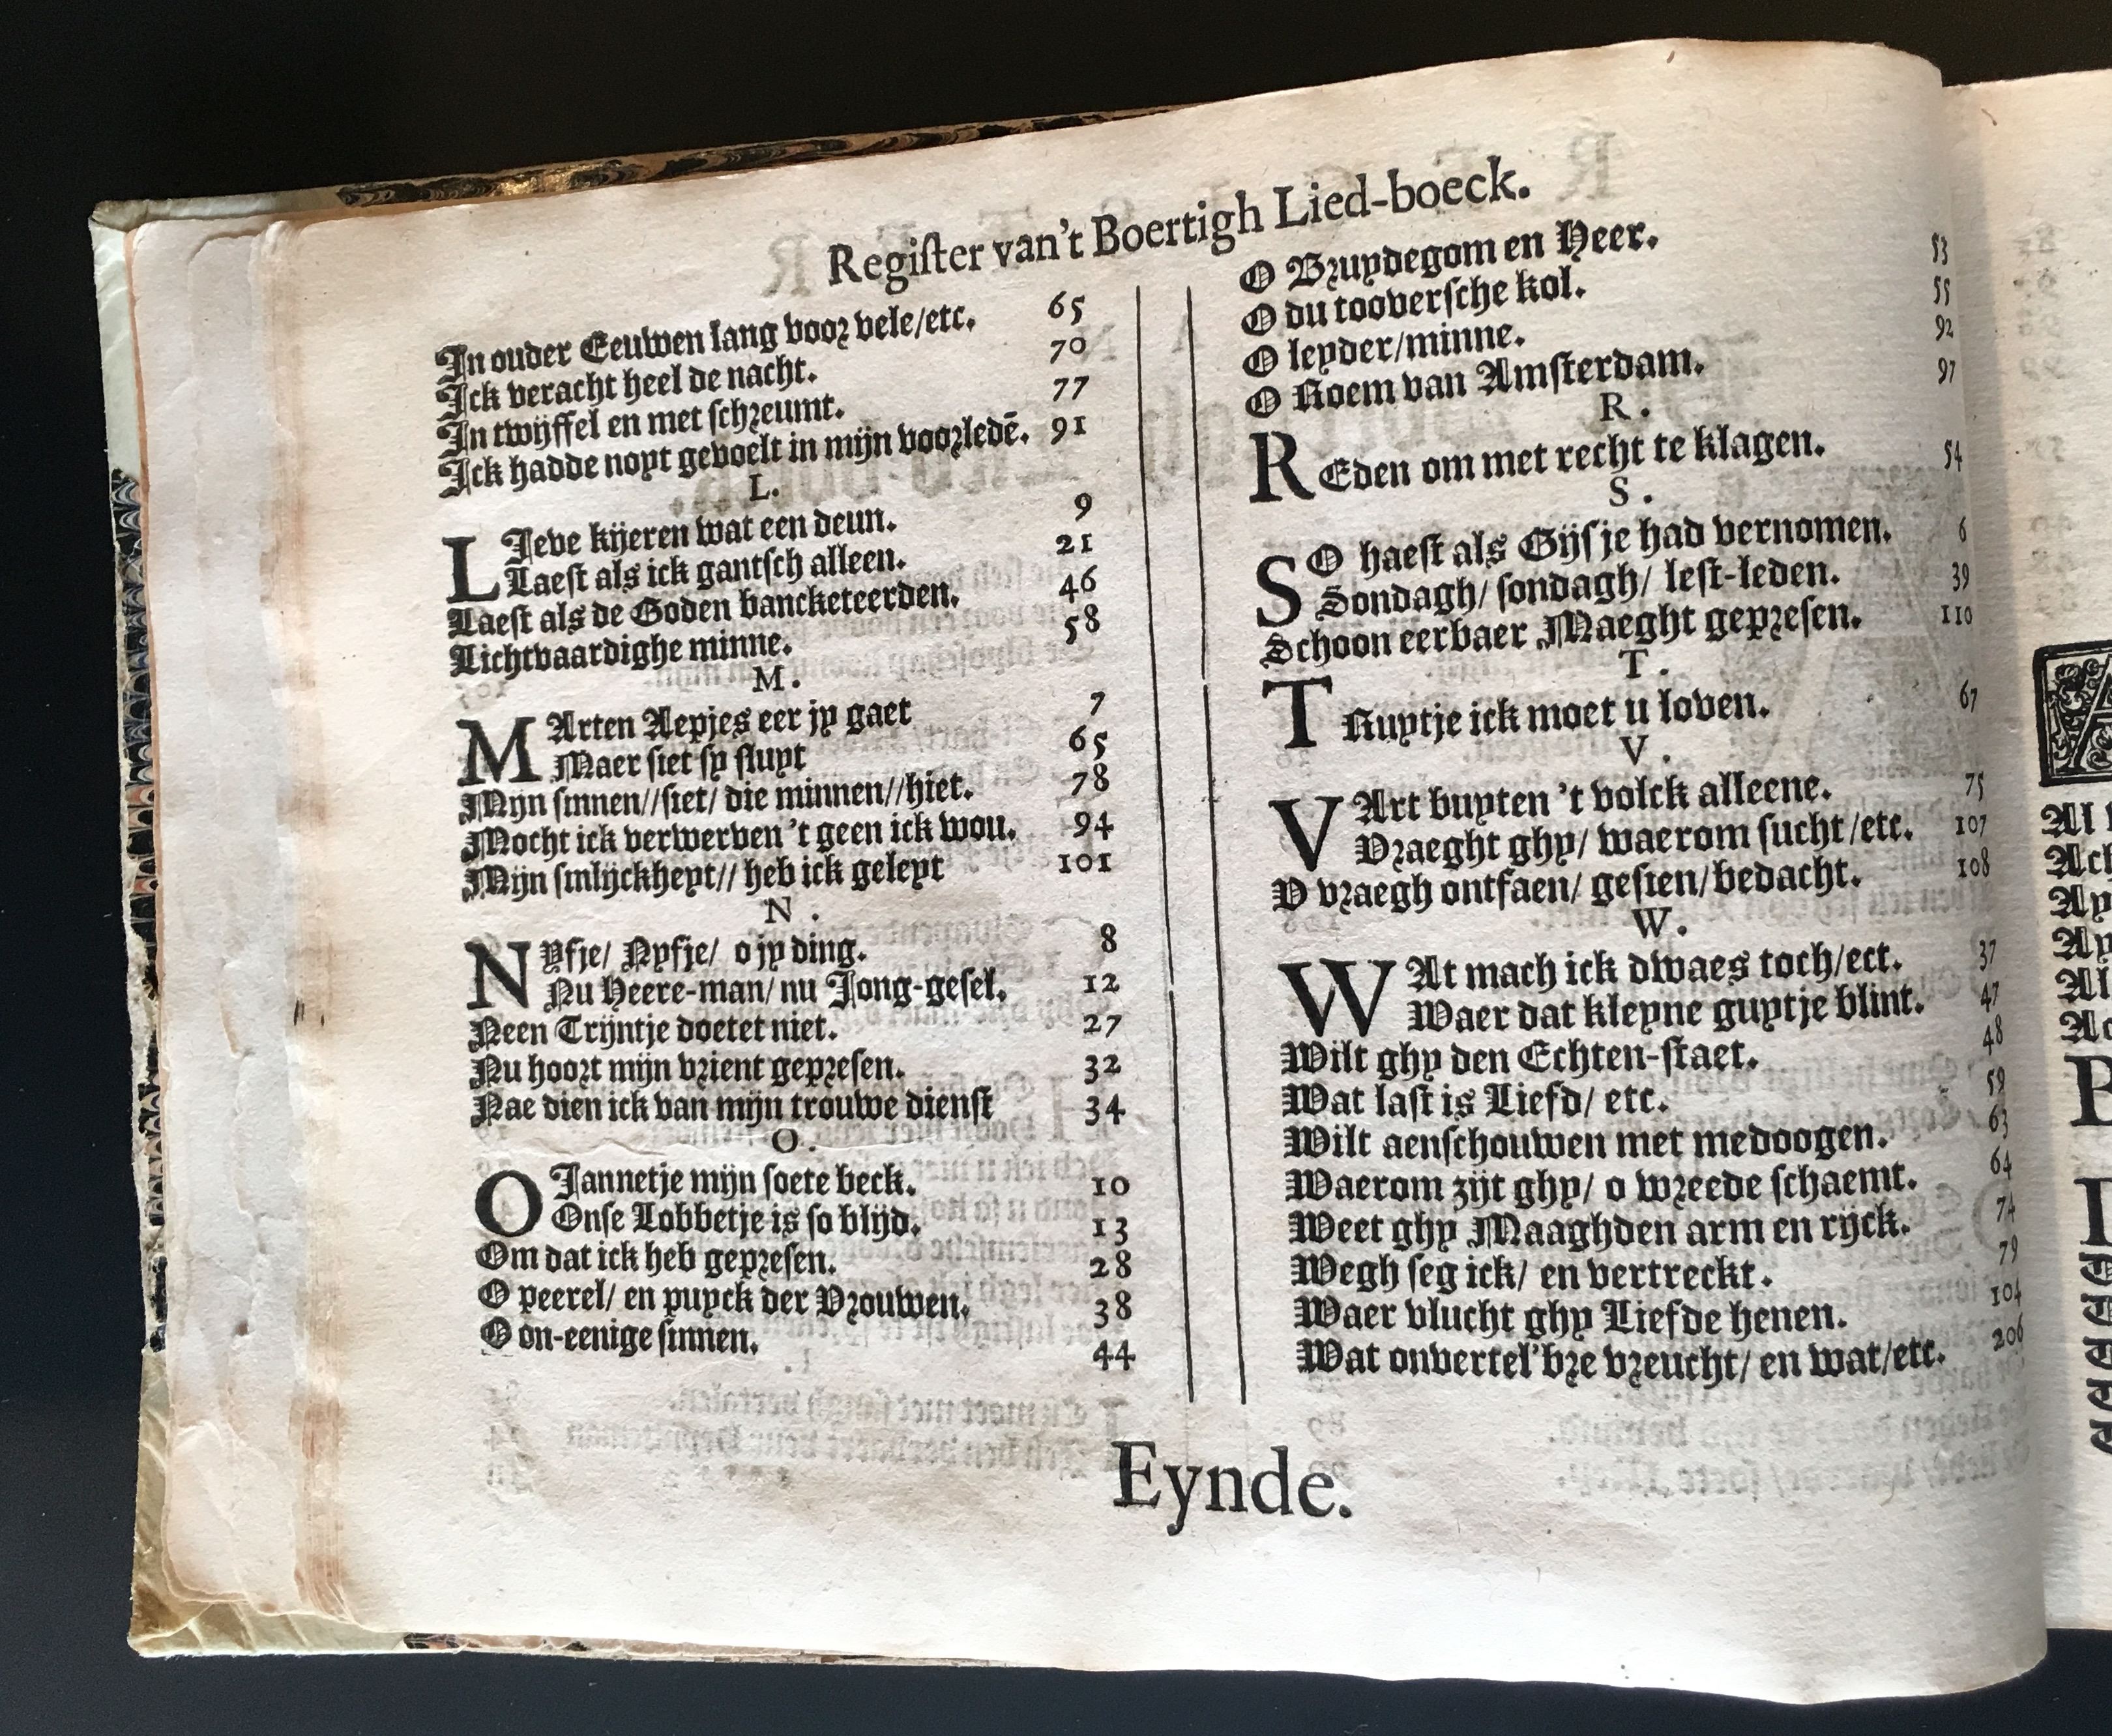 Register van't Boertigh Lied-boeck.
In ouder Eeuwen lang voor vele/etc. 65
Ick veracht heel de nacht. 70
In twijffel en met schreumt. 77
Ick hadde noyt gevoelt in mijn voorledē. 91
L.
LIeve kijeren wat een deun. 9
Laest als ick gantsch alleen. 21
Laest als de Goden bancketeerden. 46
Lichtvaardighe minne. 58
M.
MArten Aepjes eer jy gaet 7
Maer siet sy sluyt 65
Mijn sinnen//siet/ die minnen//hiet. 78
Mocht ick verwerven 't geen ick wou. 94
Mijn sinlijckheyt// heb ick geleyt 101
N.
NYfje/ Nyfje/ o jy ding. 8
Nu Heere-man/ nu Jong-gesel. 12
Neen Trijntje doetet niet. 27
Nu hoort mijn vrient gepresen. 32
Nae dien ick van mijn trouwe dienst 34
O.
O Jannetje mijn soete beck. 10
Onse Lobbetje is so blijd. 13
Om dat ick heb gepresen. 28
O peerel/ en puyck der Vrouwen. 38
O on-eenige sinnen. 44
O Bruydegom en Heer. 53
O du tooversche kol. 55
O leyder/minne. 92
O Roem van Amsterdam. 97
R.
REden om met recht te klagen. 54
S.
SO haest als Gijsje had vernomen. 6
Sondagh/ sondagh/ lest-leden. 39
Schoon eerbaer Maeght gepresen. 110
T.
TRuytje ick moet u loven. 67
V.
VArt buyten 't volck alleene. 75
Vraeght ghy/ waerom sucht/etc. 107
V vraegh ontfaen/ gesien/bedacht. 108
W.
WAt mach ick dwaes toch/ect. 37
Waer dat kleyne guytje blint. 47
Wilt ghy den Echten-staet. 48
Wat last is Liefd/ etc. 59
Wilt aenschouwen met medoogen. 63
Waerom zijt ghy/ o wreede schaemt. 64
Weet ghy Maaghden arm en rijck. 74
Wegh seg ick/ en vertreckt. 79
Waer vlucht ghy Liefde henen. 104
Wat onvertel'bre vreucht/ en wat/etc. 206
Eynde.